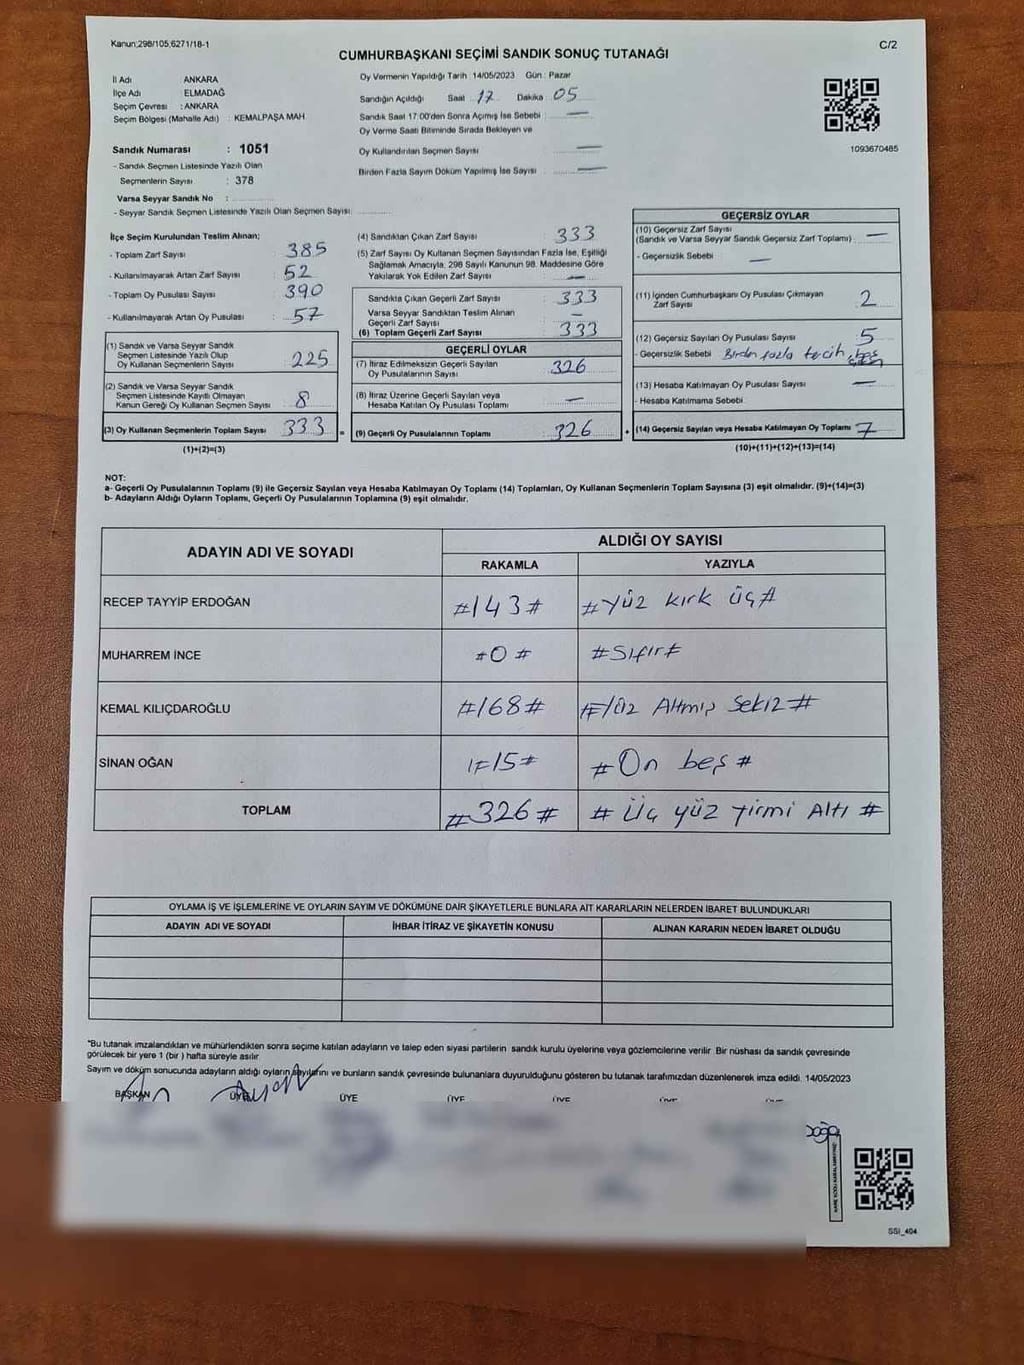 Kanun;298/105,6271/18-1
C/2
CUMHURBAŞKANI SEÇİMİ SANDIK SONUÇ TUTANAĞI
İl Adı ANKARA
İlçe Adı ELMADAĞ
Seçim Çevresi : ANKARA
Seçim Bölgesi (Mahalle Adı) : KEMALPAŞA MAH.
Oy Vermenin Yapıldığı Tarih : 14/05/2023 Gün : Pazar
Sandığın Açıldığı Saat 17 Dakika 05
Sandık Saat 17:00'den Sonra Açımış İse Sebebi : —
Oy Verme Saati Bitiminde Sırada Bekleyen ve
Oy Kullandırılan Seçmen Sayısı —
Birden Fazla Sayım Döküm Yapılmış İse Sayısı —
1093670485
Sandık Numarası : 1051
- Sandık Seçmen Listesinde Yazılı Olan
Seçmenlerin Sayısı : 378
Varsa Seyyar Sandık No :
- Seyyar Sandık Seçmen Listesinde Yazılı Olan Seçmen Sayısı:
İlçe Seçim Kurulundan Teslim Alınan;
- Toplam Zarf Sayısı : 385
- Kullanılmayarak Artan Zarf Sayısı : 52
- Toplam Oy Pusulası Sayısı : 390
- Kullanılmayarak Artan Oy Pusulası : 57
(1) Sandık ve Varsa Seyyar Sandık
Seçmen Listesinde Yazılı Olup
Oy Kullanan Seçmenlerin Sayısı : 225
(2) Sandık ve Varsa Seyyar Sandık
Seçmen Listesinde Kayıtlı Olmayan
Kanun Gereği Oy Kullanan Seçmen Sayısı : 8
(3) Oy Kullanan Seçmenlerin Toplam Sayısı : 333
(1)+(2)=(3)
(4) Sandıktan Çıkan Zarf Sayısı : 333
(5) Zarf Sayısı Oy Kullanan Seçmen Sayısından Fazla İse, Eşitliği
Sağlamak Amacıyla, 298 Sayılı Kanunun 98. Maddesine Göre
Yakılarak Yok Edilen Zarf Sayısı : —
Sandıkta Çıkan Geçerli Zarf Sayısı : 333
Varsa Seyyar Sandıktan Teslim Alınan
Geçerli Zarf Sayısı : —
(6) Toplam Geçerli Zarf Sayısı : 333
GEÇERLİ OYLAR
(7) İtiraz Edilmeksizin Geçerli Sayılan
Oy Pusulalarının Sayısı : 326
(8) İtiraz Üzerine Geçerli Sayılan veya
Hesaba Katılan Oy Pusulası Toplamı : —
= (9) Geçerli Oy Pusulalarının Toplamı : 326
GEÇERSİZ OYLAR
(10) Geçersiz Zarf Sayısı
(Sandık ve Varsa Seyyar Sandık Geçersiz Zarf Toplamı) : —
- Geçersizlik Sebebi : —
(11) İçinden Cumhurbaşkanı Oy Pusulası Çıkmayan
Zarf Sayısı : 2
(12) Geçersiz Sayılan Oy Pusulası Sayısı : 5
- Geçersizlik Sebebi : Birden fazla tercih
(13) Hesaba Katılmayan Oy Pusulası Sayısı : —
- Hesaba Katılmama Sebebi :
+ (14) Geçersiz Sayılan veya Hesaba Katılmayan Oy Toplamı : 7
(10)+(11)+(12)+(13)=(14)
NOT:
a- Geçerli Oy Pusulalarının Toplamı (9) ile Geçersiz Sayılan veya Hesaba Katılmayan Oy Toplamı (14) Toplamları, Oy Kullanan Seçmenlerin Toplam Sayısına (3) eşit olmalıdır. (9)+(14)=(3)
b- Adayların Aldığı Oyların Toplamı, Geçerli Oy Pusulalarının Toplamına (9) eşit olmalıdır.
ADAYIN ADI VE SOYADI
ALDIĞI OY SAYISI
RAKAMLA YAZIYLA
RECEP TAYYİP ERDOĞAN #143# #Yüz kırk üç#
MUHARREM İNCE #0# #Sıfır#
KEMAL KILIÇDAROĞLU #168# #Yüz Altmış Sekiz#
SİNAN OĞAN #15# #On beş#
TOPLAM #326# #Üç yüz Yirmi Altı#
OYLAMA İŞ VE İŞLEMLERİNE VE OYLARIN SAYIM VE DÖKÜMÜNE DAİR ŞİKAYETLERLE BUNLARA AİT KARARLARIN NELERDEN İBARET BULUNDUKLARI
ADAYIN ADI VE SOYADI İHBAR İTİRAZ VE ŞİKAYETİN KONUSU ALINAN KARARIN NEDEN İBARET OLDUĞU
"Bu tutanak imzalandıktan ve mühürlendikten sonra seçime katılan adayların ve talep eden siyasi partilerin sandık kurulu üyelerine veya gözlemcilerine verilir. Bir nüshası da sandık çevresinde
görülecek bir yere 1 (bir) hafta süreyle asılır.
Sayım ve döküm sonucunda adayların aldığı oyların sayılarını ve bunların sandık çevresinde bulunanlara duyurulduğunu gösteren bu tutanak tarafımızdan düzenlenerek imza edildi. 14/05/2023
BAŞKAN ÜYE ÜYE ÜYE ÜYE ÜYE ÜYE
SSI_404